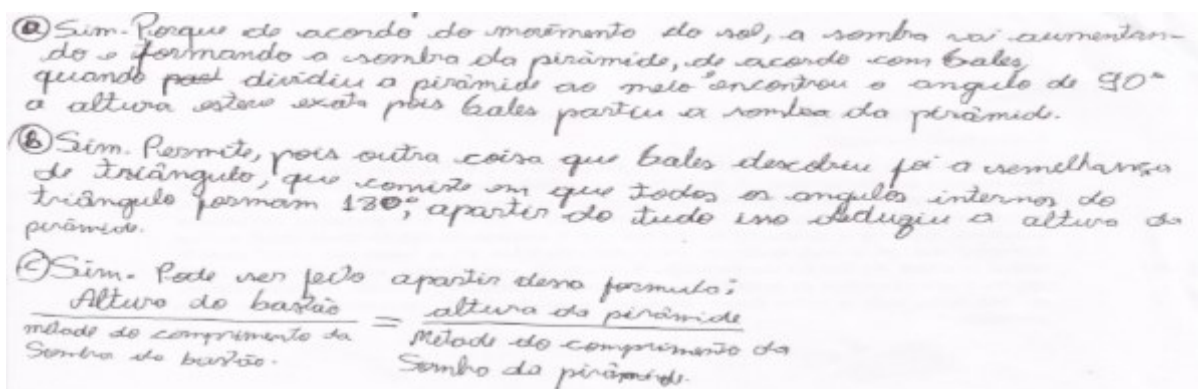 ⓐ Sim. Porque de acordo do movimento do sol, a sombra vai aumentan-
do e formando a sombra da pirâmide, de acordo com tales,
quando dividiu a pirâmide ao meio encontrou o angulo de 90°
a altura estava exata pois tales partiu a sombra da pirâmide.
ⓑ Sim. Permite, pois outra coisa que tales descobriu foi a semelhança
de triângulo, que consiste em que todos os angulos internos do
triângulo formam 180°, apartir do tudo isso deduziu a altura da
pirâmide.
ⓒ Sim. Pode ser feito apartir dessa formula:
Altura do bastão = altura da pirâmide
metade do comprimento da Metade do comprimento da
Sombra do bastão. Sombra da pirâmide.